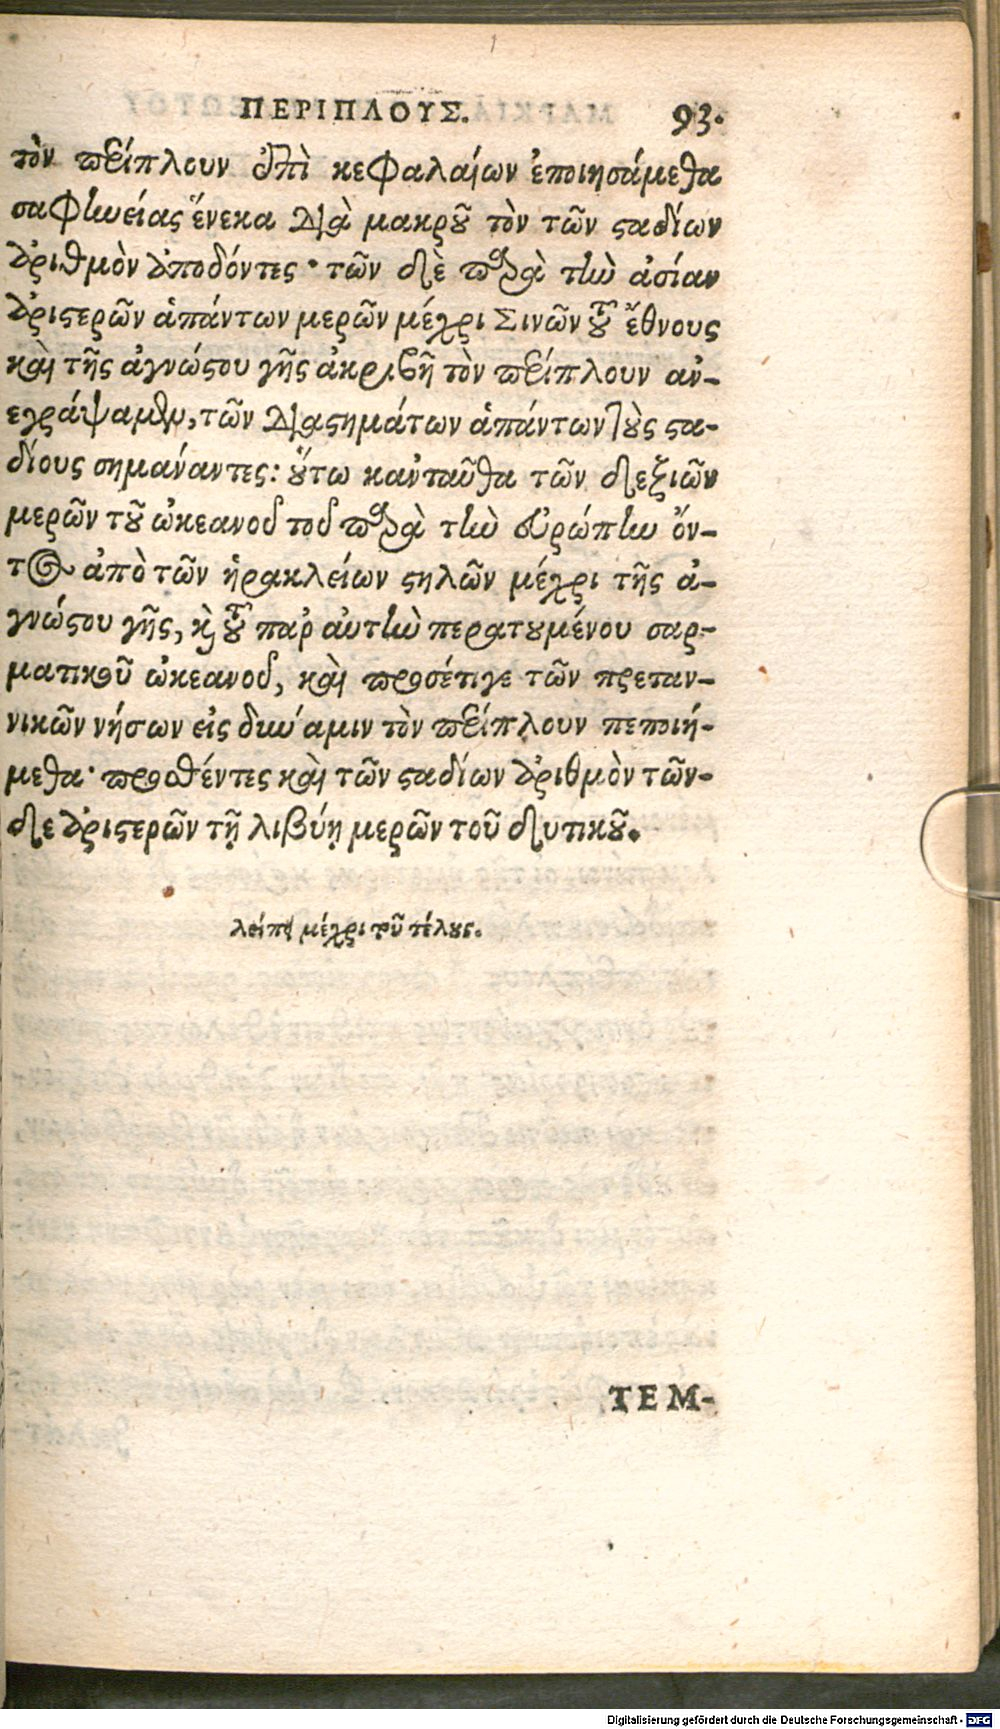 ΠΕΡΙΠΛΟΥΣ. 93.
τὸν περίπλουν ἐπὶ κεφαλαίων ἐποιησάμεθα
σαφηνείας ἕνεκα διὰ μακροῦ τὸν τῶν σταδίων
ἀριθμὸν ἀποδόντες· τῶν δὲ παρὰ τὴν ἀσίαν
ἀριστερῶν ἁπάντων μερῶν μέχρι Σινῶν τοῦ ἔθνους
καὶ τῆς ἀγνώστου γῆς ἀκριβῆ τὸν περίπλουν αν-
εγράψαμεν, τῶν διαστημάτων ἁπάντων τοὺς στα-
δίους σημάναντες: οὕτω κανταῦθα τῶν δεξιῶν
μερῶν τοῦ ὠκεανοῦ τοῦ παρὰ τὴν εὐρώπην ὄν-
τος ἀπὸ τῶν ἡρακλείων στηλῶν μέχρι τῆς ἀ-
γνώστου γῆς, καὶ τοῦ παρ αὐτὴν περατουμένου σαρ-
ματικοῦ ὠκεανοῦ, καὶ προσέτιγε τῶν πρεταν-
νικῶν νήσων εἰς δύναμιν τὸν περίπλουν πεποιή-
μεθα· προθέντες καὶ τῶν σταδίων ἀριθμὸν τῶν-
δε ἀριστερῶν τῇ λιβύῃ μερῶν τοῦ δυτικοῦ.
λείπει μέχρι τοῦ τέλους.
ΤΕΜ-
Digitalisierung gefördert durch die Deutsche Forschungsgemeinschaft - DFG